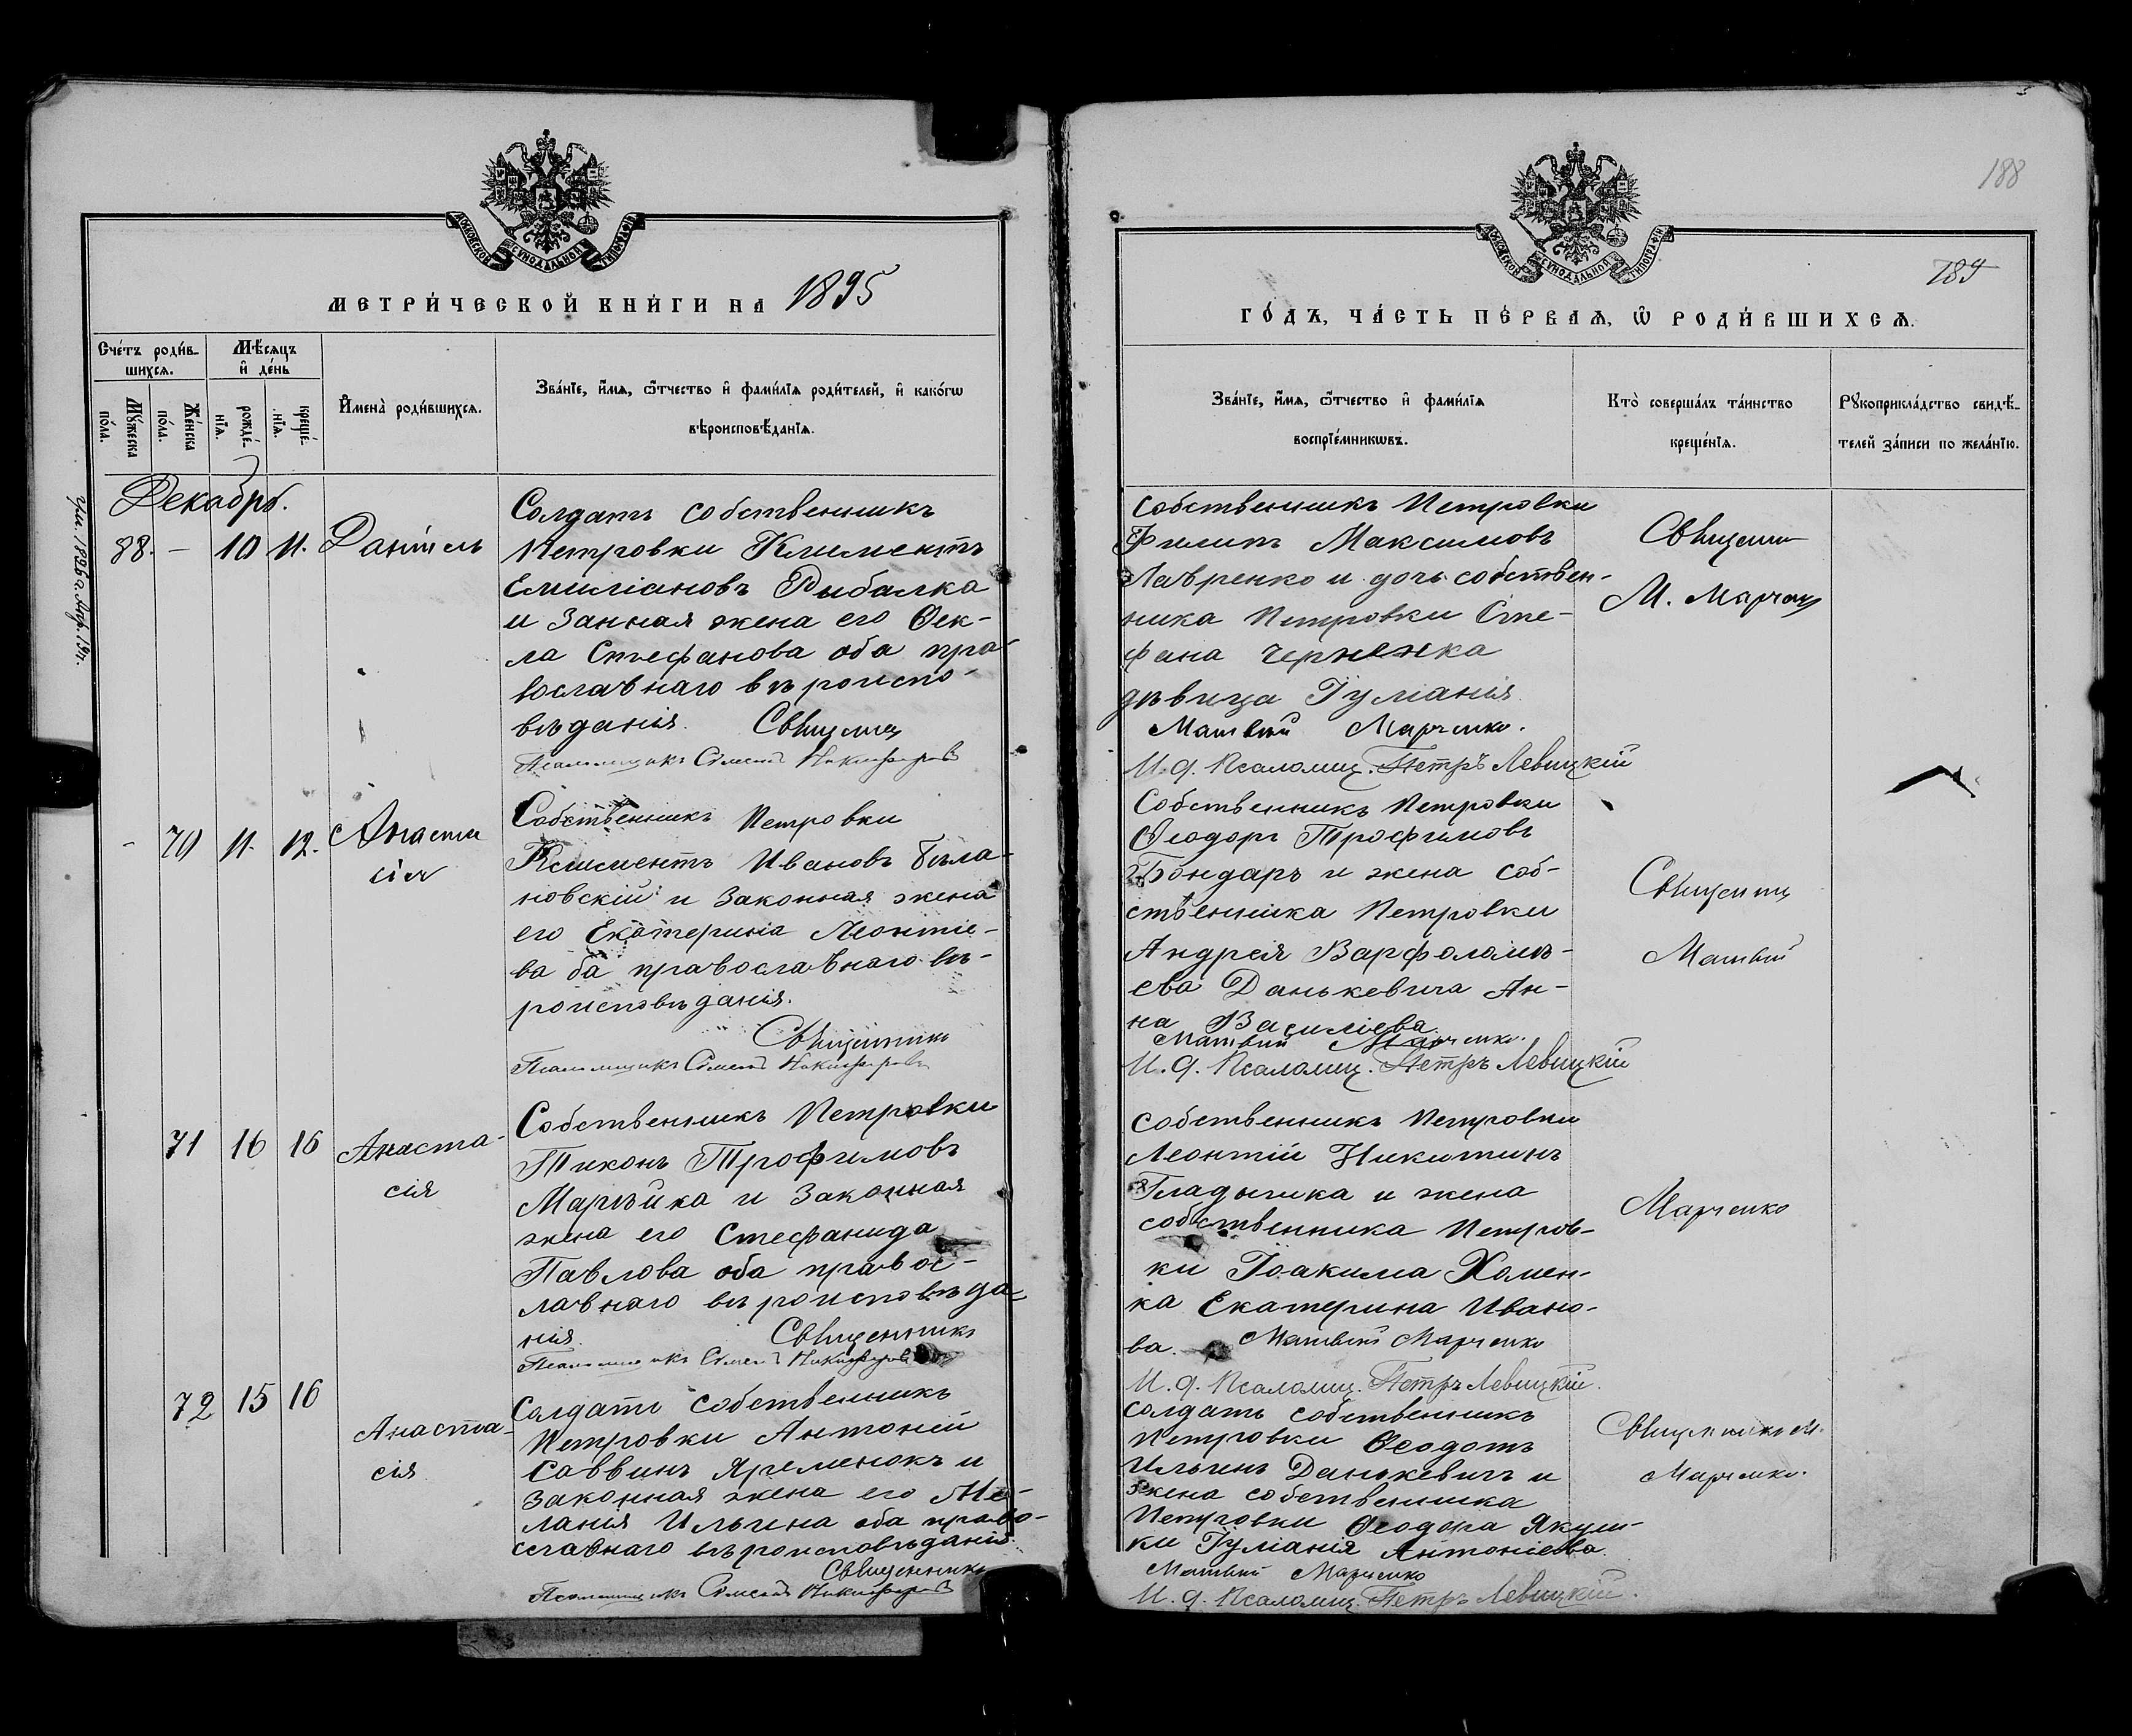 МОСКОВСКОЙ СѴНОДАЛЬНОЙ ТИПОГРАФІИ
МЕТРИ́ЧЕСКОЙ КНИ́ГИ НА 1895
Сче́тъ роди́в-
шихсѧ.
Мѣ́сѧцъ
и҆ де́нь
Мꙋ́жеска
по́ла.
Же́нска
по́ла.
рожде́-
нїѧ.
креще́-
нїѧ.
И҆мена̀ роди́вшихсѧ.
Зва́нїе, и҆́мѧ, ѻ҆́тчество и҆ фами́лїѧ роди́телей, и҆ како́гѡ
вѣроисповѣ́данїѧ.
Декабрь.
88. — 10 11. Даніилъ
Солдатъ собственникъ
Петровки Климентъ
Емиліановъ Рибалка
и Занная жена его Ѳек-
ла Стефанова оба пра-
вославнаго вѣроиспо-
вѣданія. Священникъ
Псаломщикъ Симеонъ Никифоровъ
Ум. 1896 г. Апр. 19 г.
- 70 11. 12. Анаста
сія
Собственникъ Петровки
Климентъ Ивановъ Бѣла-
новскій и Законная жена
его Екатериніа Леонтіе-
ва ба православнаго вѣ-
роисповѣданія.
Священникъ
Псаломщикъ Симеонъ Никифоровъ
71 16 16 Анаста-
сія
Собственникъ Петровки
Тихонъ Трофимовъ
Марѣйка и Законная
жена его Стефанида
Павлова оба правос-
лавнаго вѣроисповѣда-
нія. Священникъ
Псаломщикъ Симеонъ Никифоровъ
72 15 16
Анаста-
сія
Солдатъ собственникъ
Петровки Антоній
Саввинъ Яременокъ и
законная жена его Ме-
ланія Ильина оба право-
славнаго вѣроисповѣданія.
Священникъ
Псаломщикъ Симеонъ Никифоровъ
188
МОСКОВСКОЙ СѴНОДАЛЬНОЙ ТИПОГРАФІИ
ГО́ДЪ, ЧА́СТЬ ПЕ́РВАѦ, Ѡ҆ РОДИ́ВШИХСѦ.
Зва́нїе, и҆́мѧ, ѻ҆́тчество и҆ фами́лїѧ
воспрїе́мникѡвъ.
Кто̀ соверша́лъ та́инство
креще́нїѧ.
Рꙋкоприкла́дство свидѣ́-
телей за́писи по жела́нїю.
собственникъ Петровки
Филипъ Максимовъ
Лавренко и дочь собствен-
ника Петровки Сте-
фана Черненка
дѣвица Іуліанія
Матвѣй Марченко.
И. д. Псаломщ. Петръ Левицкій
Священ
М. Марчен
Собственникъ Петровки
Ѳеодоръ Трофимовъ
Бондаръ и жена соб-
ственника Петровки
Андрея Варфоломѣ-
ева Данькевича Ан-
на Василіева.
Матвѣй Марченко.
И. д. Псаломщ. Петръ Левицкій
Священникъ
Матвѣй
собственникъ Петровки
Леонтій Никитинъ
Гладышка и жена
собственника Петров-
ки Іоакима Хомен-
ка Екатерина Ивано-
ва. Матвѣй Марченко
И. д. Псаломщ. Петръ Левицкій.
Марченко
солдатъ собственникъ
Петровки Ѳеодотъ
Ильинъ Данькевичъ и
жена собственника
Петровки Ѳеодора Якуш-
ки Іуліанія Антоніева.
Матвѣй Марченко
И. д. Псаломщ. Петръ Левицкій.
Священникъ М.
Марченко.